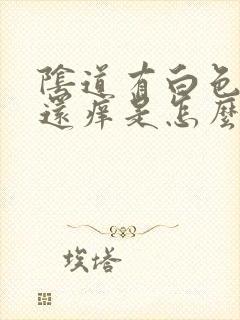 陰道有白色
還痒是怎麼
埃塔